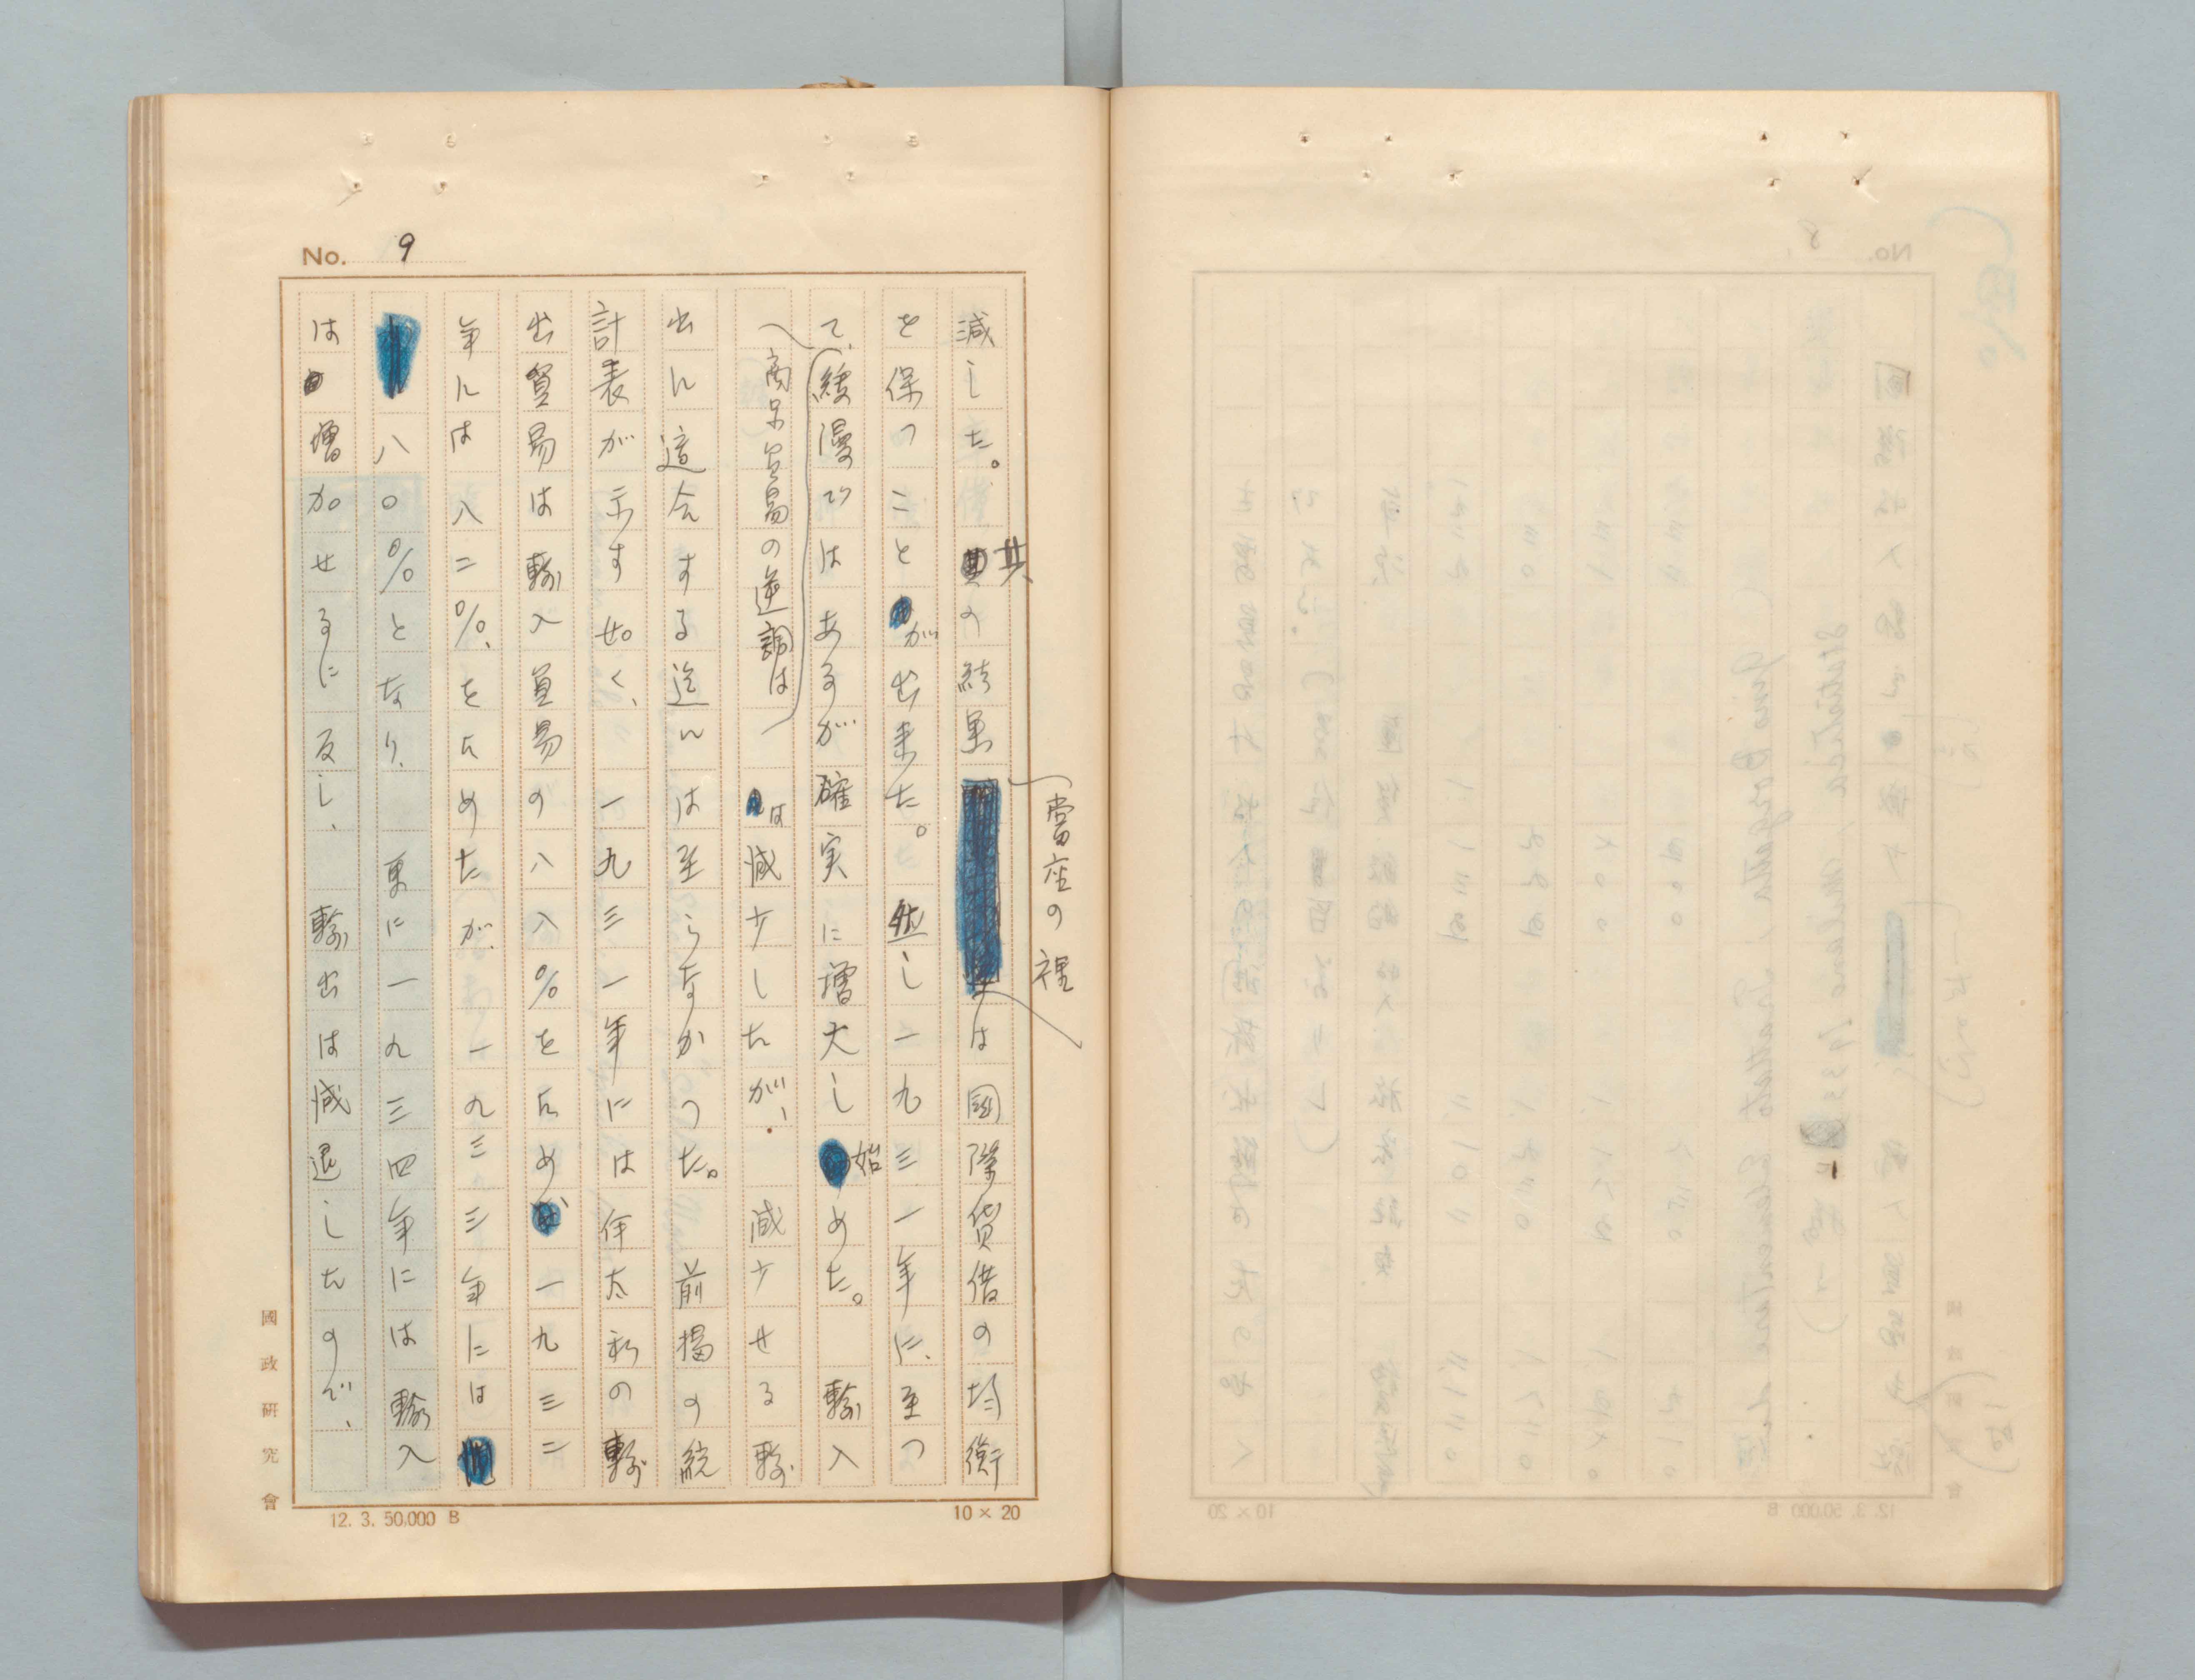 No. 9
減した。其の結果當座の裡は國際貨借の均衡
を保つことが出来た。然し一九三一年に至つ
て、緩漫ではあるが確実に増大し始めた。輸入
商品貿易の逆調は
は減少したが、減少せる輸
出に遭会する迄には至らなかつた。前掲の統
計表が示す如く、一九三一年には伊太利の輸
出貿易は輸入貿易の八八%を占め一九三二
年には八二%、を占めたが、一九三三年には
八〇%となり、更に一九三四年には輸入
は増加せるに反し、輸出は減退したので、
國政研究會
12. 3. 50,000 B
10×20